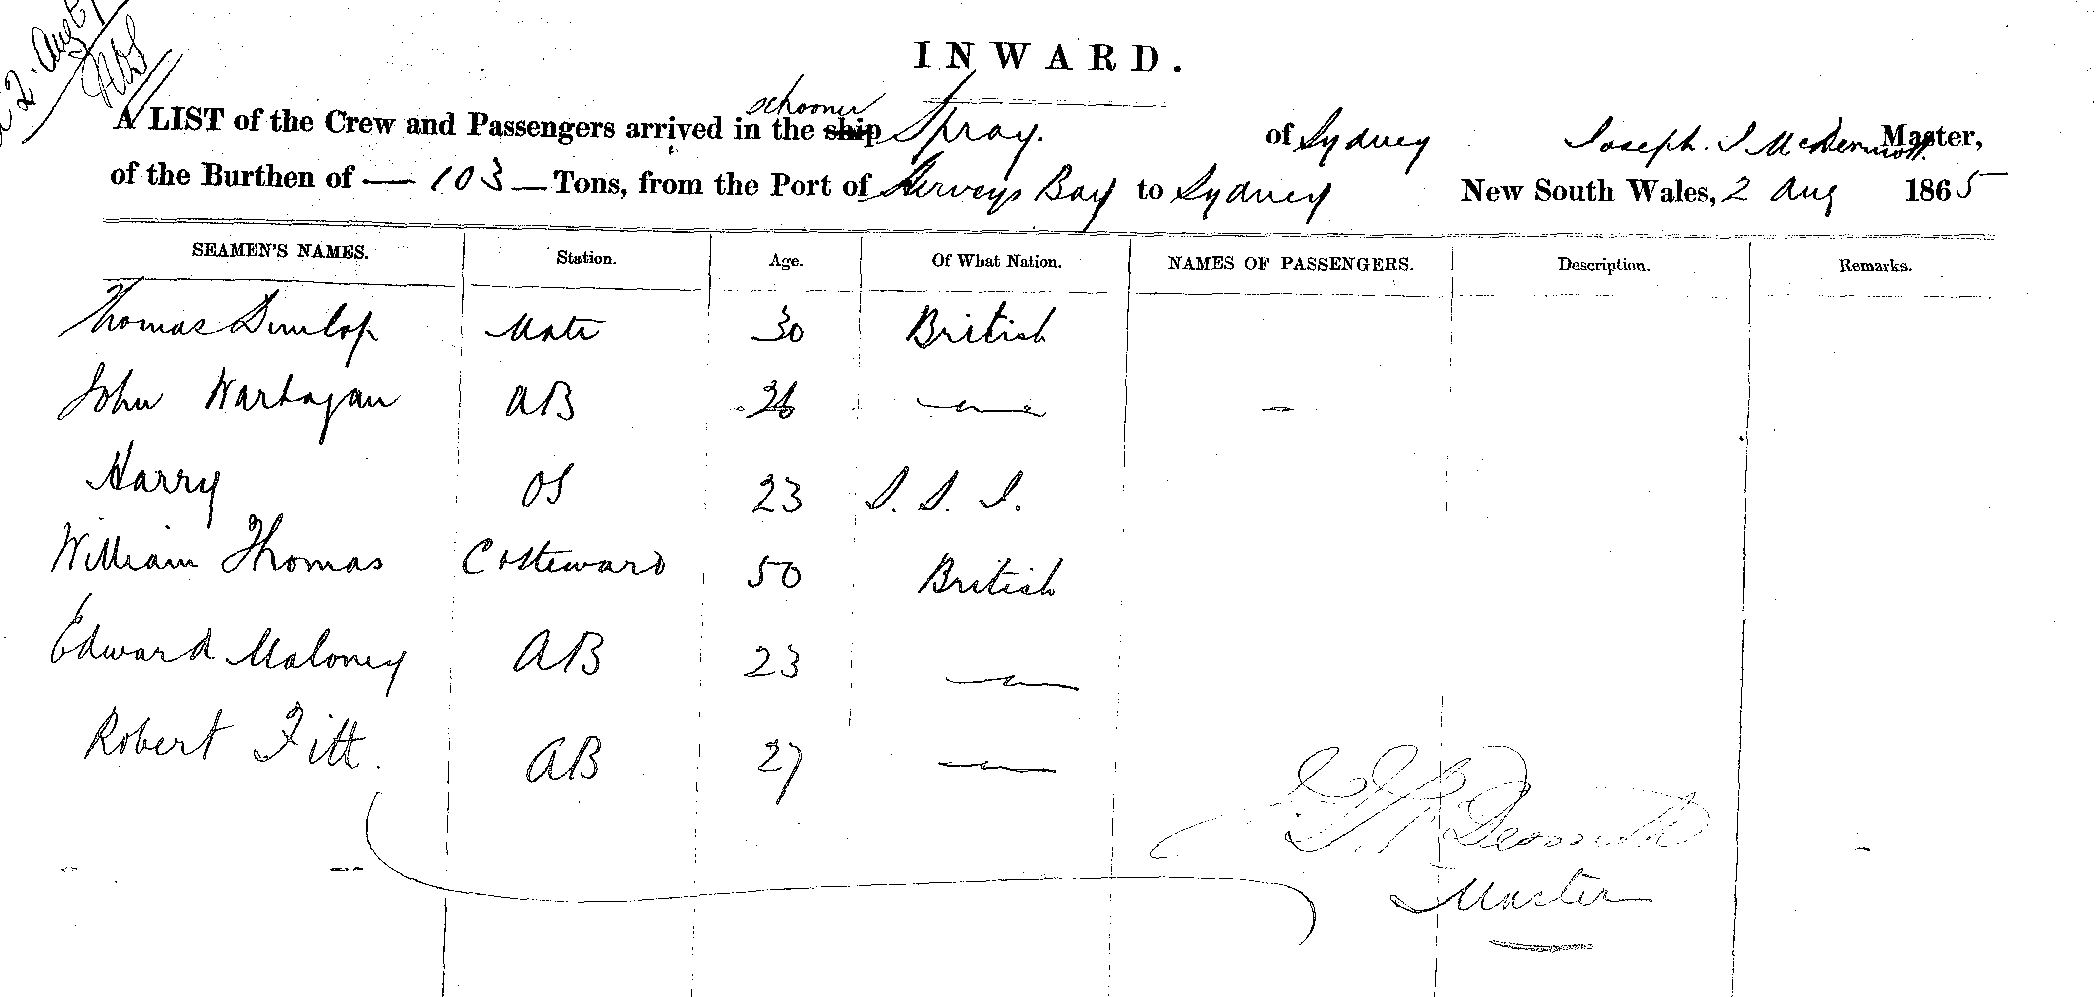 2 Aug
INWARD.
schooner
A LIST of the Crew and Passengers arrived in the ship Spray. of Sydney Joseph. J McDermott Master,
of the Burthen of — 103 — Tons, from the Port of Herveys Bay to Sydney New South Wales, 2 Aug 1865
SEAMEN'S NAMES. Station. Age. Of What Nation. NAMES OF PASSENGERS. Description. Remarks.
Thomas Dunlop Mate 30 British
John AB 26 — —
Harry OS 23 S. S. I.
William Thomas C & Steward 50 British
Edward Maloney AB 23 —
Robert Fitt. AB 27 —
J. J. McDermott
Master